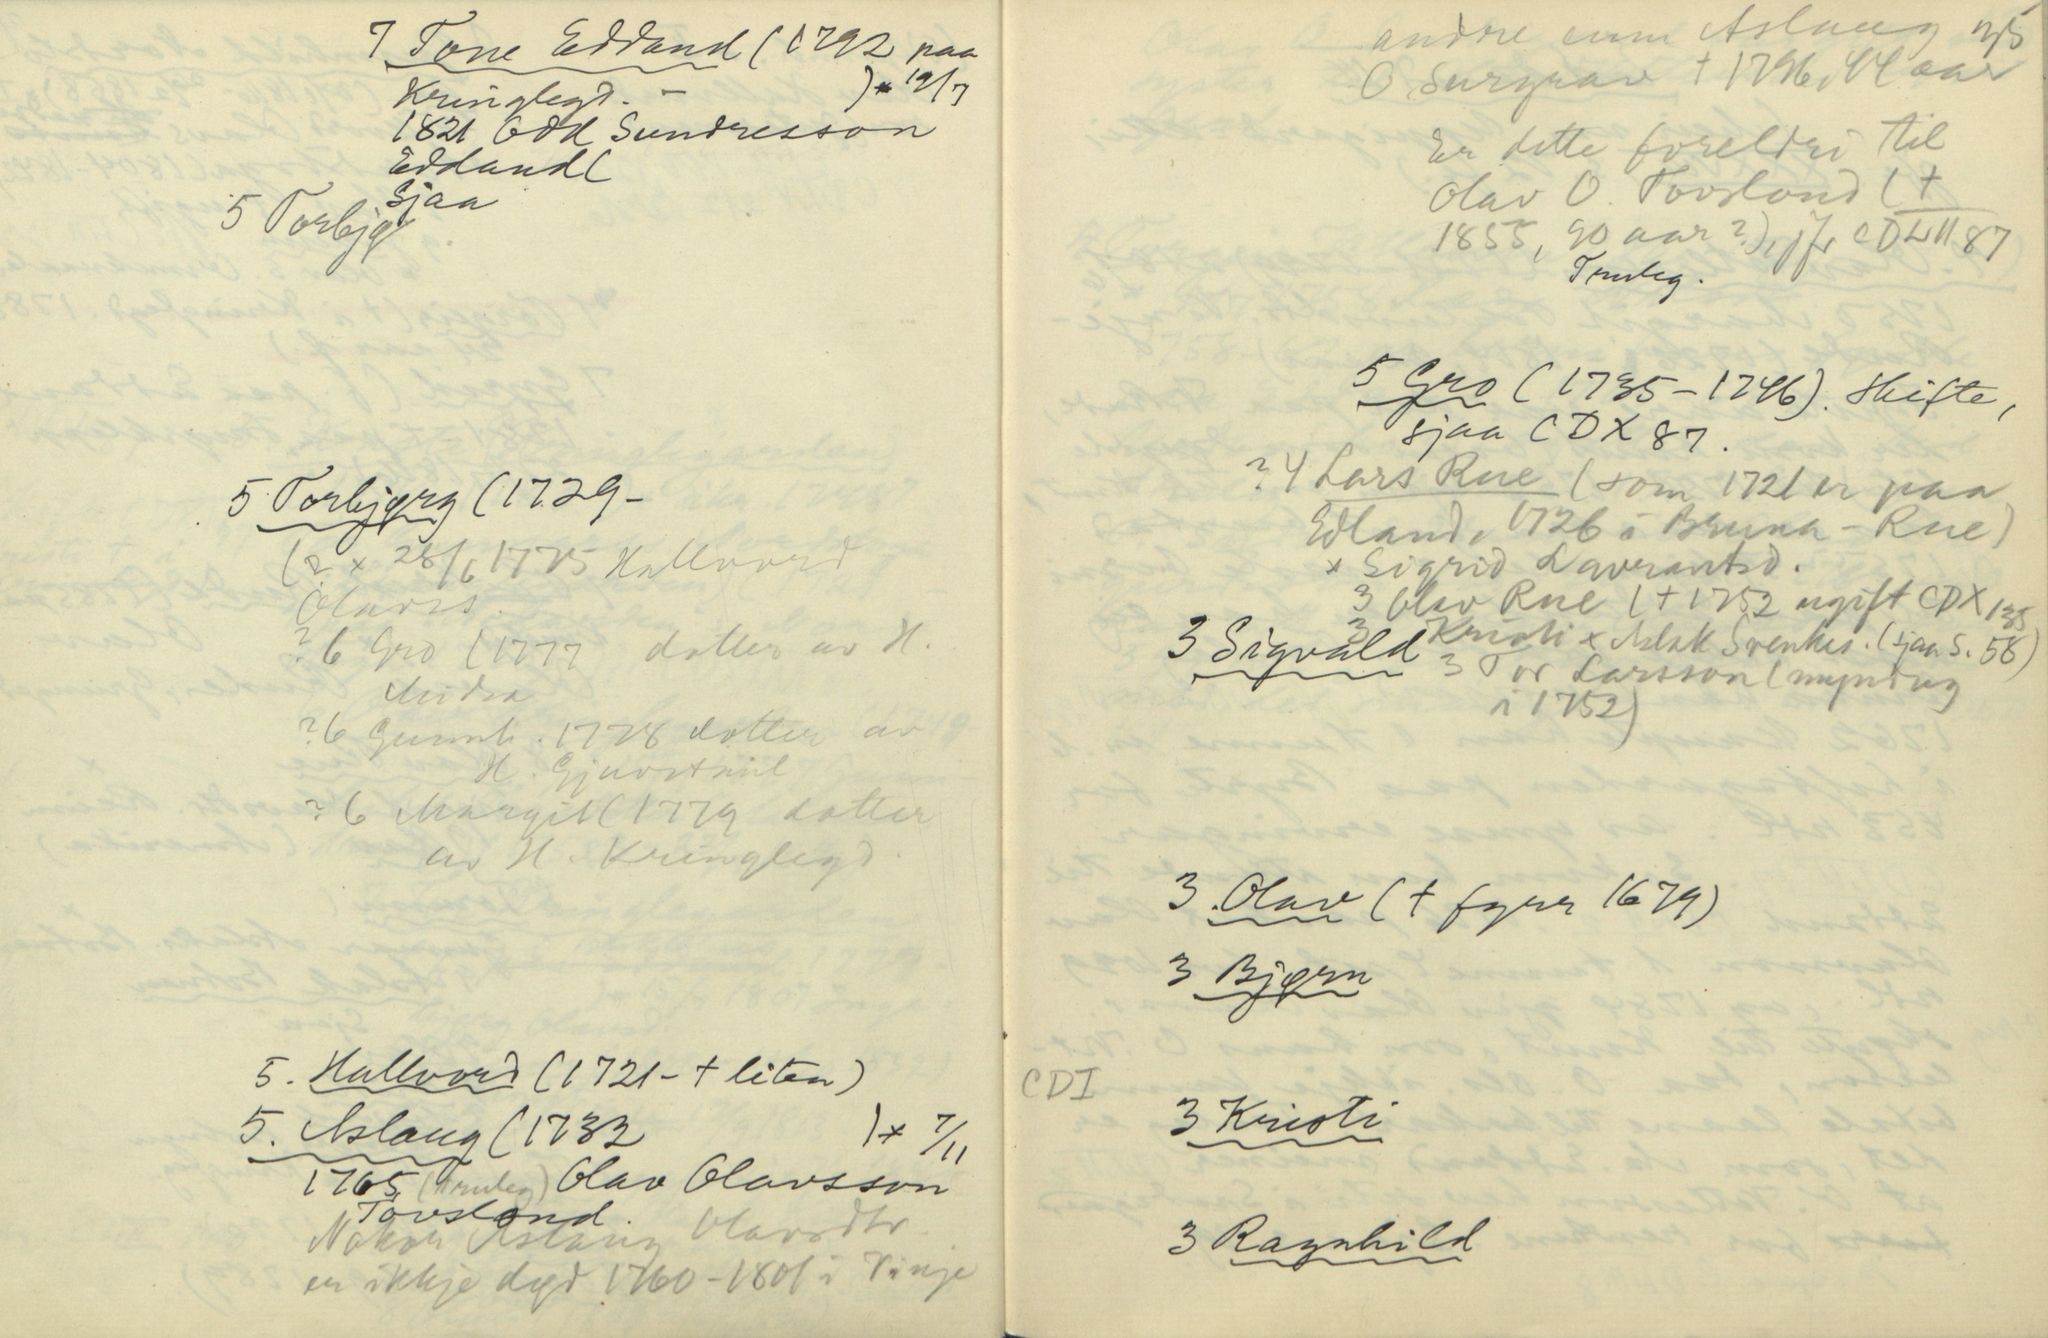 7 Tone Eddand (1792 paa
Kringlegd. - )× 19/7
1821 Odd Sundresson
Eddand (
Sjaa
5 Torbjø
5 Torbjørg (1729-
(2 × 28/6 1775 Hallvord
Olavss.
?6 Gro (1777 dotter av H.
Midra
?6 Gunnh. 1778 dotter av
H. Gjuvstuil
?6 Margit (1779 dotter
av H. Kringlegd.
5. Hallvord (1721- † liten)
5. Aslaug (1732 )× 7/11
1765 (truleg) Olav Olavsson
Tovslond.
Nokor Aslaug Olavsdtr.
er ikkje døyd 1760-1801 i Vinje
andre enn Aslaug 35
O Surgrav † 1796, 44 aar
Er dette foreldri til
Olav O. Tovslond (†
1855, 90 aar?), jfr CDLII 87
Truleg.
5 Gro (1735-1746). Skifte,
sjaa CDX 87.
?4 Lars Rue (som 1721 er paa
Edland, 1726 i Bruna-Rue)
× Sigrid Lavrantsd.
3 Olav Rue († 1752 ugift CDX 135
3 Kristi × Aslak Svenkes. (sjaa s. 58)
3 Sigvald
3 Tor Larsson (myndug
i 1752)
3 Olav († fyrr 1679)
3 Bjørn
CDI
3 Kristi
3 Ragnhild